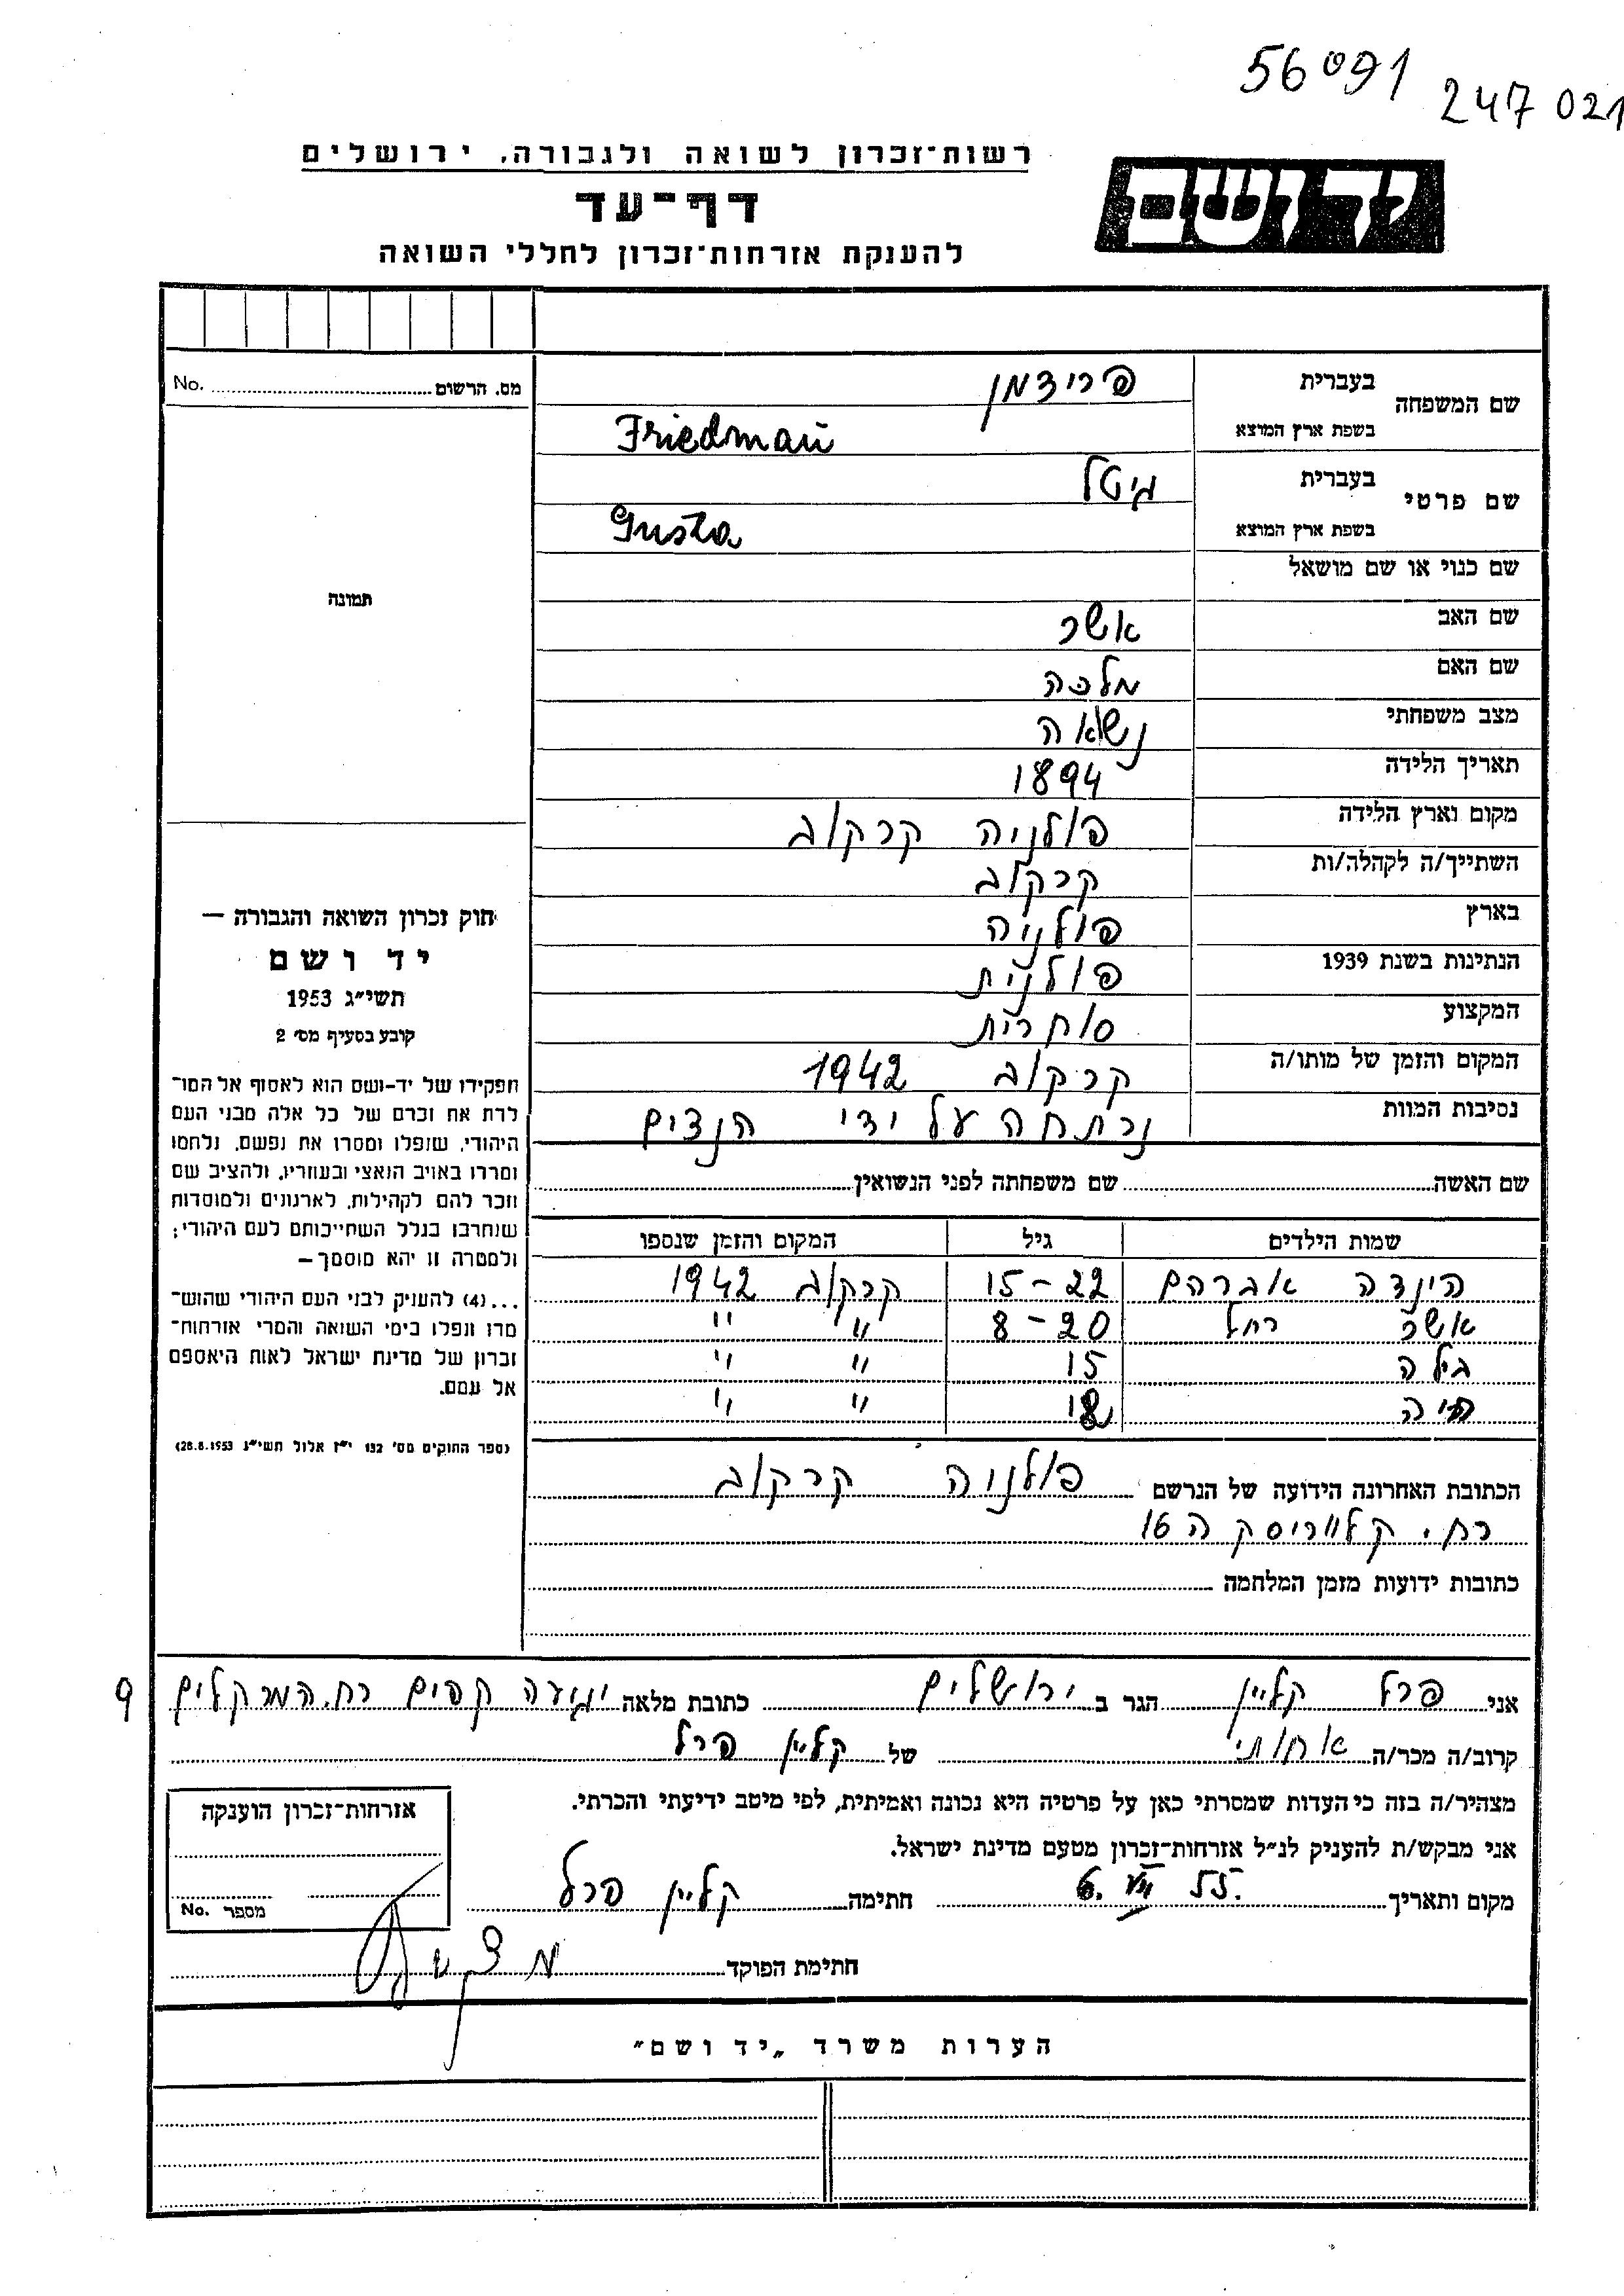 56091
247 021
רשות־זכרון לשואה ולגבורה, ירושלים
יד ושם
דף־עד
להענקת אזרחות־זכרון לחללי השואה
מס. הרשום No.
שם המשפחה בעברית פרידמן
בשפת ארץ המוצא Friedman
שם פרטי בעברית גיטל
בשפת ארץ המוצא Gusta
שם כנוי או שם מושאל
שם האב אשר
שם האם מלכה
מצב משפחתי נשאה
תאריך הלידה 1894
מקום וארץ הלידה פולניה קרקוב
השתייך/ה לקהלה/ות קרקוב
בארץ פולניה
הנתינות בשנת 1939 פולנית
המקצוע סוחרית
המקום והזמן של מותו/ה קרקוב 1942
נסיבות המוות נרתחה על ידי הנצים
שם האשה שם משפחתה לפני הנשואין
שמות הילדים גיל המקום והזמן שנספו
הינדה אברהם 15-22 קרקוב 1942
אשר רחל 8-20 " "
בילה 15 " "
חיה 18 " "
הכתובת האחרונה הידועה של הנרשם פולניה קרקוב
רח. קלווריסקה 16
כתובות ידועות מזמן המלחמה
תמונה
חוק זכרון השואה והגבורה —
יד ושם
תשי"ג 1953
קובע בסעיף מס' 2
תפקידו של יד-ושם הוא לאסוף אל המו־
לדת את זכרם של כל אלה מבני העם
היהודי, שנפלו ומסרו את נפשם, נלחמו
ומרדו באויב הנאצי ובעוזריו, ולהציב שם
וזכר להם לקהילות, לארגונים ולמוסדות
שנחרבו בגלל השתייכותם לעם היהודי;
ולמטרה זו יהא מוסמך —
...(4) להעניק לבני העם היהודי שהוש־
מדו ונפלו בימי השואה והמרי אזרחות־
זכרון של מדינת ישראל לאות היאספם
אל עמם.
(ספר החוקים מס' 132 י"ז אלול תשי"ג 28.8.1953)
אני פרל קליין הגר ב ירושלים כתובת מלאה יגיעה קפים רח. המרקלים 9
קרוב/ה מכר/ה אחותי של קליין פרל
מצהיר/ה בזה כי העדות שמסרתי כאן על פרטיה היא נכונה ואמיתית, לפי מיטב ידיעתי והכרתי.
אני מבקש/ת להעניק לנ"ל אזרחות־זכרון מטעם מדינת ישראל.
מקום ותאריך 6. VII 55. חתימה קליין פרל
חתימת הפוקד
אזרחות־זכרון הוענקה
מספר No.
הערות משרד „יד ושם"